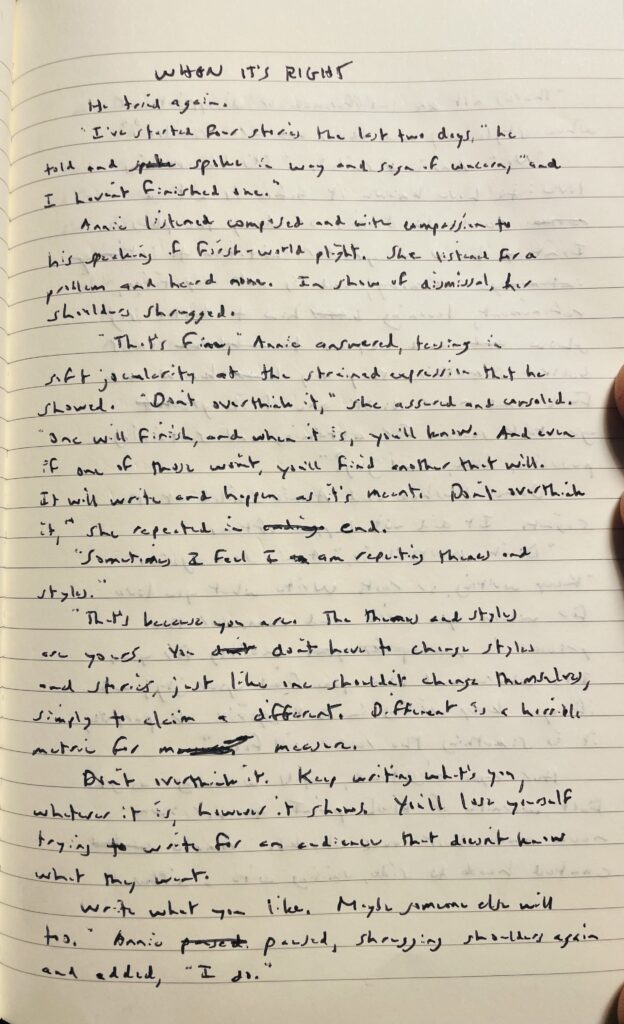 WHEN IT'S RIGHT
He tried again.
"I've started four stories the last two days," he
told and spoke spoke in way and sign of concern, "and
I haven't finished one."
Annie listened composed and with compassion to
his speaking of first-world plight. She listened for a
problem and heard none. In show of dismissal, her
shoulders shrugged.
"That's fine," Annie answered, teasing in
soft jocularity at the strained expression that he
showed. "Don't overthink it," she assured and consoled.
"One will finish, and when it is, you'll know. And even
if one of those won't, you'll find another that will.
It will write and happen as it's meant. Don't overthink
it," she repeated in ending end.
"Sometimes I feel I am repeating themes and
styles."
"That's because you are. The themes and styles
are yours. You don't don't have to change styles
and stories, just like one shouldn't change themselves,
simply to claim a different. Different is a horrible
metric for measure.
Don't overthink it. Keep writing what's you,
whatever it is, however it shows. You'll lose yourself
trying to write for an audience that doesn't know
what they want.
Write what you like. Maybe someone else will
too." Annie paused paused, shrugging shoulders again
and added, "I do."